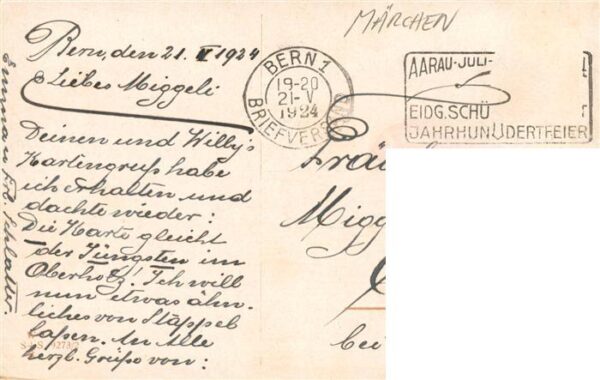 MÄRCHEN
Bern, den 21. V 1924
Liebes Miggeli
Deinen und Willy's
Kartengruß habe
ich erhalten und
dachte wieder:
Die Karte gleicht
der Jüngsten im
Oberholz! Ich will
nun etwas ähn-
liches von Stäppel
laßen. An Alle
herzl. Grüße von:
BERN 1
19-20
21-V
1924
BRIEFVERSAND
AARAU-JULI-
EIDG. SCHÜ
JAHRHUNDERTFEIER
Fräu
Migg
bei